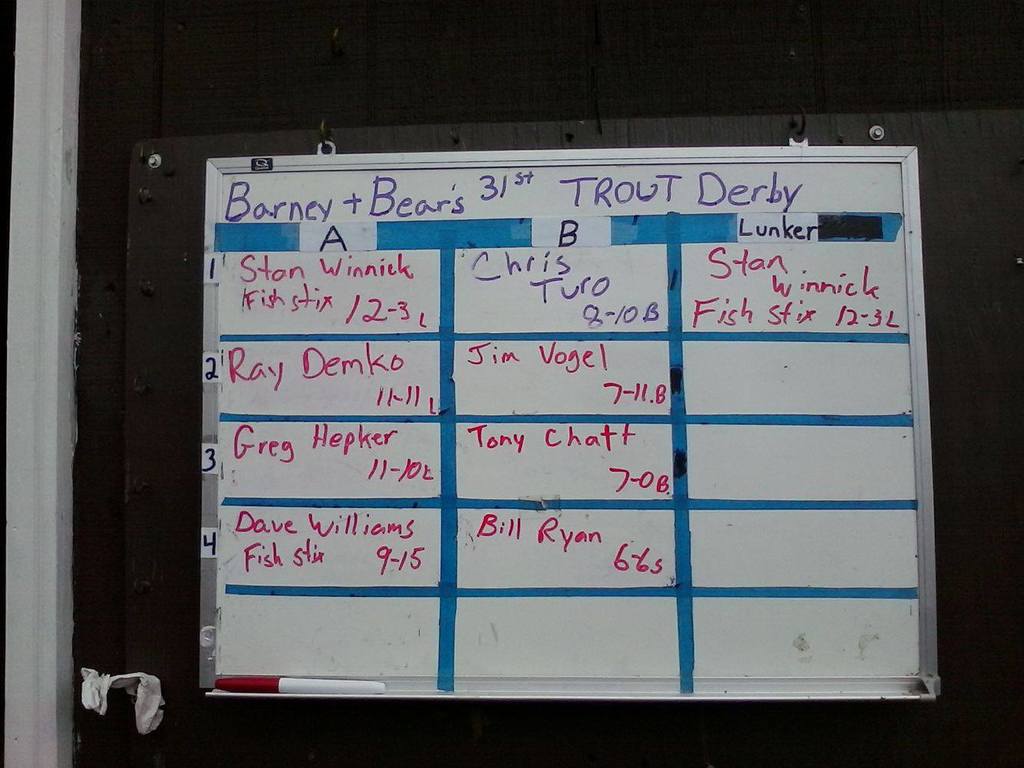 Barney + Bear's 31st TROUT Derby
A B Lunker
1 Stan Winnick
Fish stix 12-3 L
Chris
Turo
8-10 B
Stan
Winnick
Fish stix 12-3 L
2 Ray Demko
11-11 L
Jim Vogel
7-11. B
3 Greg Hepker
11-10 L
Tony Chatt
7-0 B
4 Dave Williams
Fish stix 9-15
Bill Ryan
6-6 s